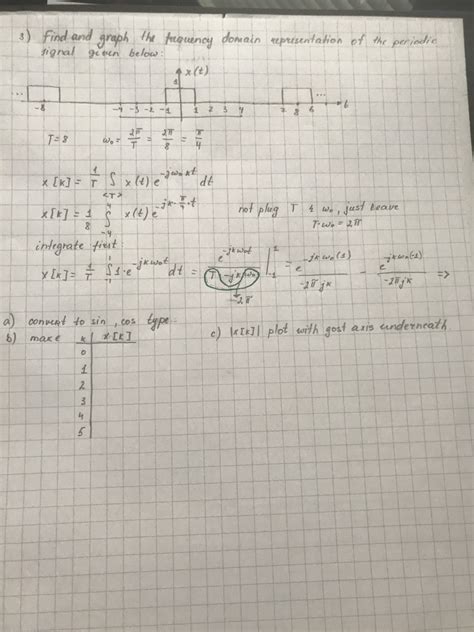 3) Find and graph the frequency domain representation of the periodic
signal given below:
x(t)
1
... ...
-8 -4 -3 -2 -1 1 2 3 4 7 8 6 t
T=8 ω₀= 2π/T = 2π/8 = π/4
x[k] = 1/T ∫<T> x(t) e^-jω₀kt dt
x[k] = 1/8 ∫_-4^4 x(t) e^-jk·π/4·t not plug T & ω₀, just leave
T·ω₀ = 2π
integrate first
x[k] = 1/T ∫_-1^1 1·e^-jkω₀t dt = e^-jkω₀t / T -jkω₀ |_-1^1 = e^-jkω₀(1) / -2πjk - e^-jkω₀(-1) / -2πjk =>
-2π
a) convert to sin, cos type
b) make k | x[k] c) |x[k]| plot with gost axis underneath
0
1
2
3
4
5